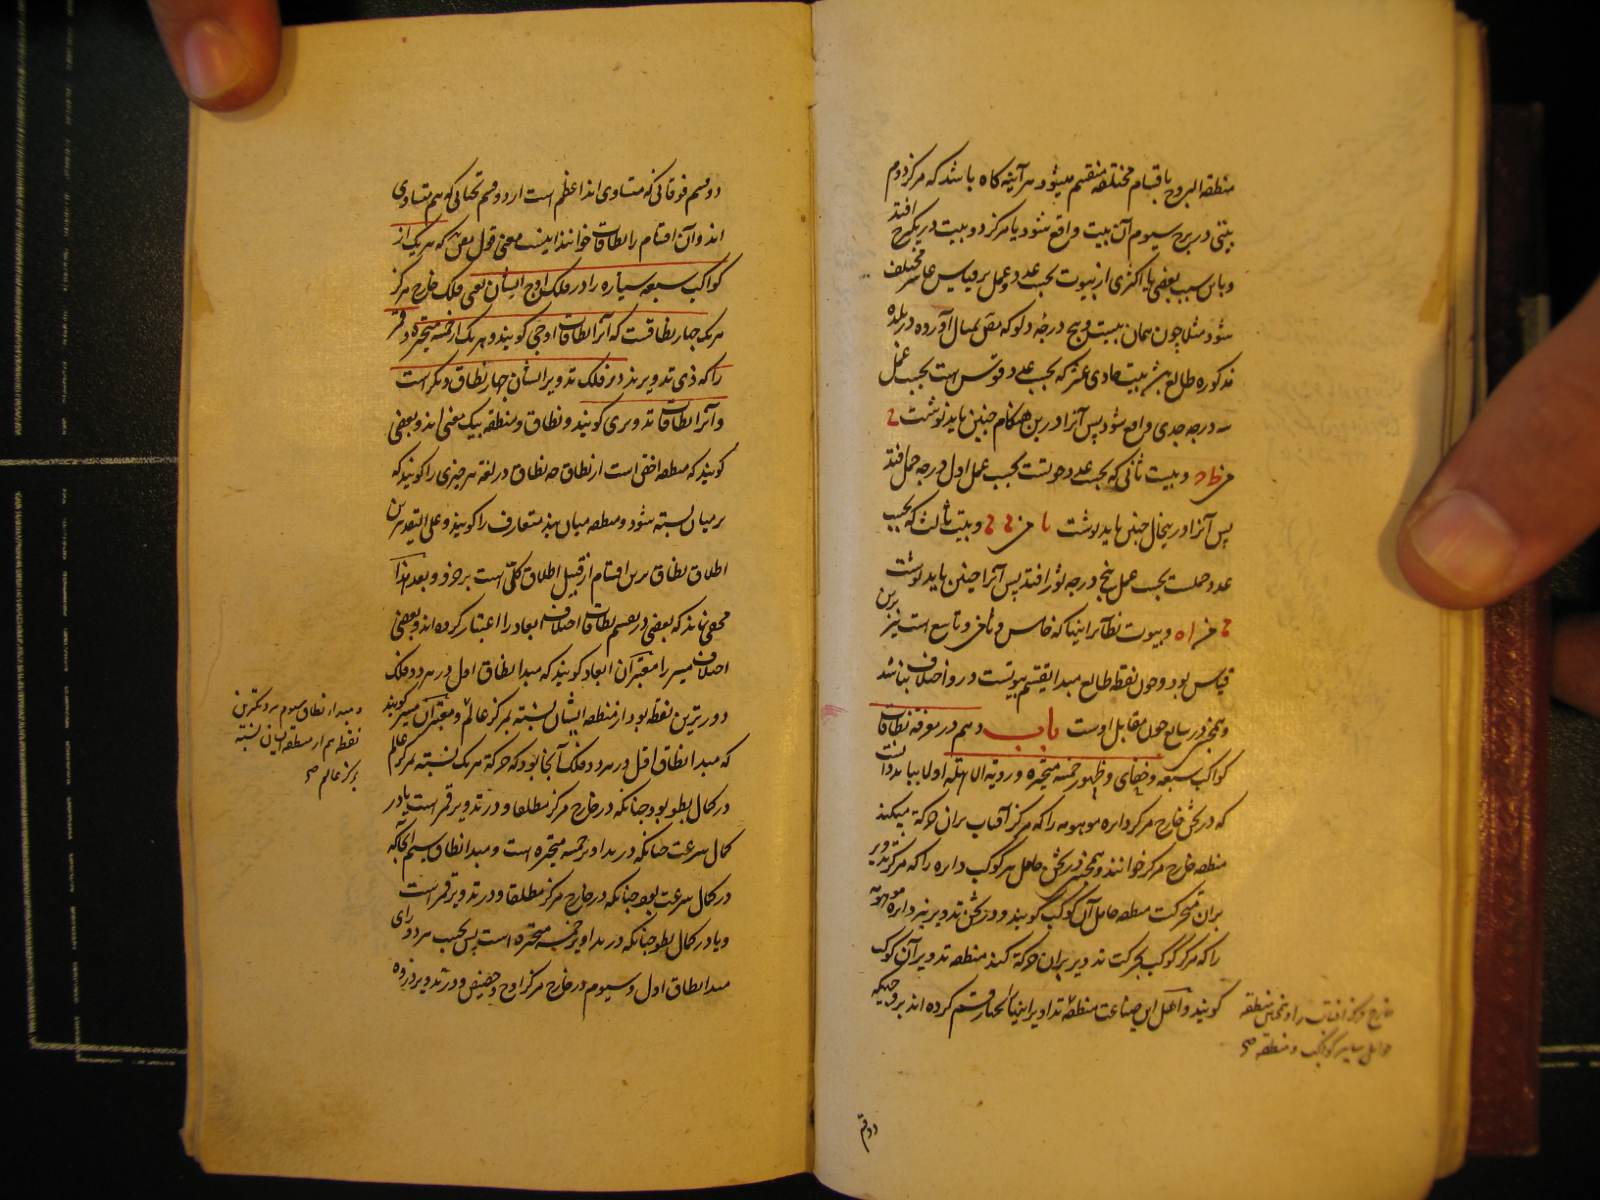 منطقه البروج باقسام مختلفه منقسم میشود هر آینه کاه باشد که مرکز دوم
بیتی در برج سیوم آن بیت واقع شود یا مرکز دو بیت در یکبرج افتد
و باین سبب بعضی یا اکثری از بیوت بحسب عدد و عمل بر قیاس عاشر مختلف
شود مثلا چون همان بیست و پنج درجه دلو که بمثال آورده در بلده
مذکوره طالع بیت حادی عشر که بحسب عدد قوس است بحسب عمل
سه درجه جدی واقع شود پس آنرا درین هنکام چنین باید نوشت
و بیت ثانی که بحسب عدد حوتست بحسب عمل اول درجه حمل افتد
پس آنرا درینحال چنین باید نوشت و بیت ثالث که بحسب
عدد حملست بحسب عمل پنج درجه ثور افتد پس آنرا چنین باید نوشت
و بیوت نظایر اینها که خامس و ثامن و تاسع است نیز برین
قیاس بود و چون نقطه طالع مبدا تقسیم بیوتست در و اختلاف نباشد
و همچنین در سابع چون مقابل اوست باب دهم در معرفة نطاقات
کواکب سبعه و خفای و ظهور خمسه متحیره و رویة الاهله اولا بباید دانست
که در ثخن خارج مرکز دایره موهومه را که مرکز آفتاب بران حرکة میکند
منطقه خارج مرکز خوانند و همچنین در ثخن حامل هر کوکب دایره را که مرکز تدویر
بران متحرکت منطقه حامل آن کوکب کویند و در ثخن تدویر نیز دایره موهومه
را که مرکز کوکب بحرکت تدویر بران حرکة کند منطقه تدویر آن کوکب
کویند و اهل این صناعت منطقه تداویر اینها را بچهار قسم کرده اند بر وجهیکه
خارج مرکز آفتاب را و همچنین منطقه
حوامل سایر کواکب و منطقه صح
دو قسم
دو قسم فوقانی که متساوی اند اعظم است از دو قسم تحتانی که هم متساوی
اند و آن اقسام را نطاقات خوانند اینست معنی قول مص که هر یک از
کواکب سبعه سیاره را در فلک اوج ایشان یعنی فلک خارج مرکز
هر یک چهار نطاقست که آنرا نطاقات اوجی کویند و هر یک از خمسه متحیره و قمر
را که ذی تدویرند در فلک تدویر ایشان چهار نطاق دیکر است
و آنرا نطاقات تدویری کویند و نطاق و منطقه بیک معنی اند و بعضی
کویند که منطقه اخص است از نطاق چه نطاق در لغة هر چیزی را کویند که
بر میان بسته شود و منطقه میان بند متعارف را کویند و علی التقدیرین
اطلاق نطاق برین اقسام از قبیل اطلاق کلی است بر جزو و بعد هذا
مخفی نماند که بعضی در تقسیم نطاقات اختلاف ابعاد را اعتبار کرده اند و بعضی
اختلاف مسیر را معتبران ابعاد کویند که مبدا نطاق اول در هر دو فلک
دورترین نقطه بود از منطقه ایشان نسبة بمرکز عالم و معتبران مسیر کویند
که مبدا نطاق اول در هر دو فلک آنجا بود که حرکة هر یک نسبة بمرکز عالم
در کمال بطو بود چنانکه در خارج مرکز مطلقا و در تدویر قمر است یا در
کمال سرعت چنانکه در تداویر خمسه متحیره است و مبدا نطاق سیوم آنجا که
در کمال سرعت بود چنانکه در خارج مرکز مطلقا و در تدویر قمر است
و یا در کمال بطو چنانکه در تداویر خمسه متحیره است پس بحسب هر دو رای
مبدا نطاق اول و سیوم در خارج مرکز اوج و حضیض و در تدویر ذروه
و مبدا نطاق سیوم نزدیکترین
نقطه هم از منطقه ایشان نسبة
بمرکز عالم صح